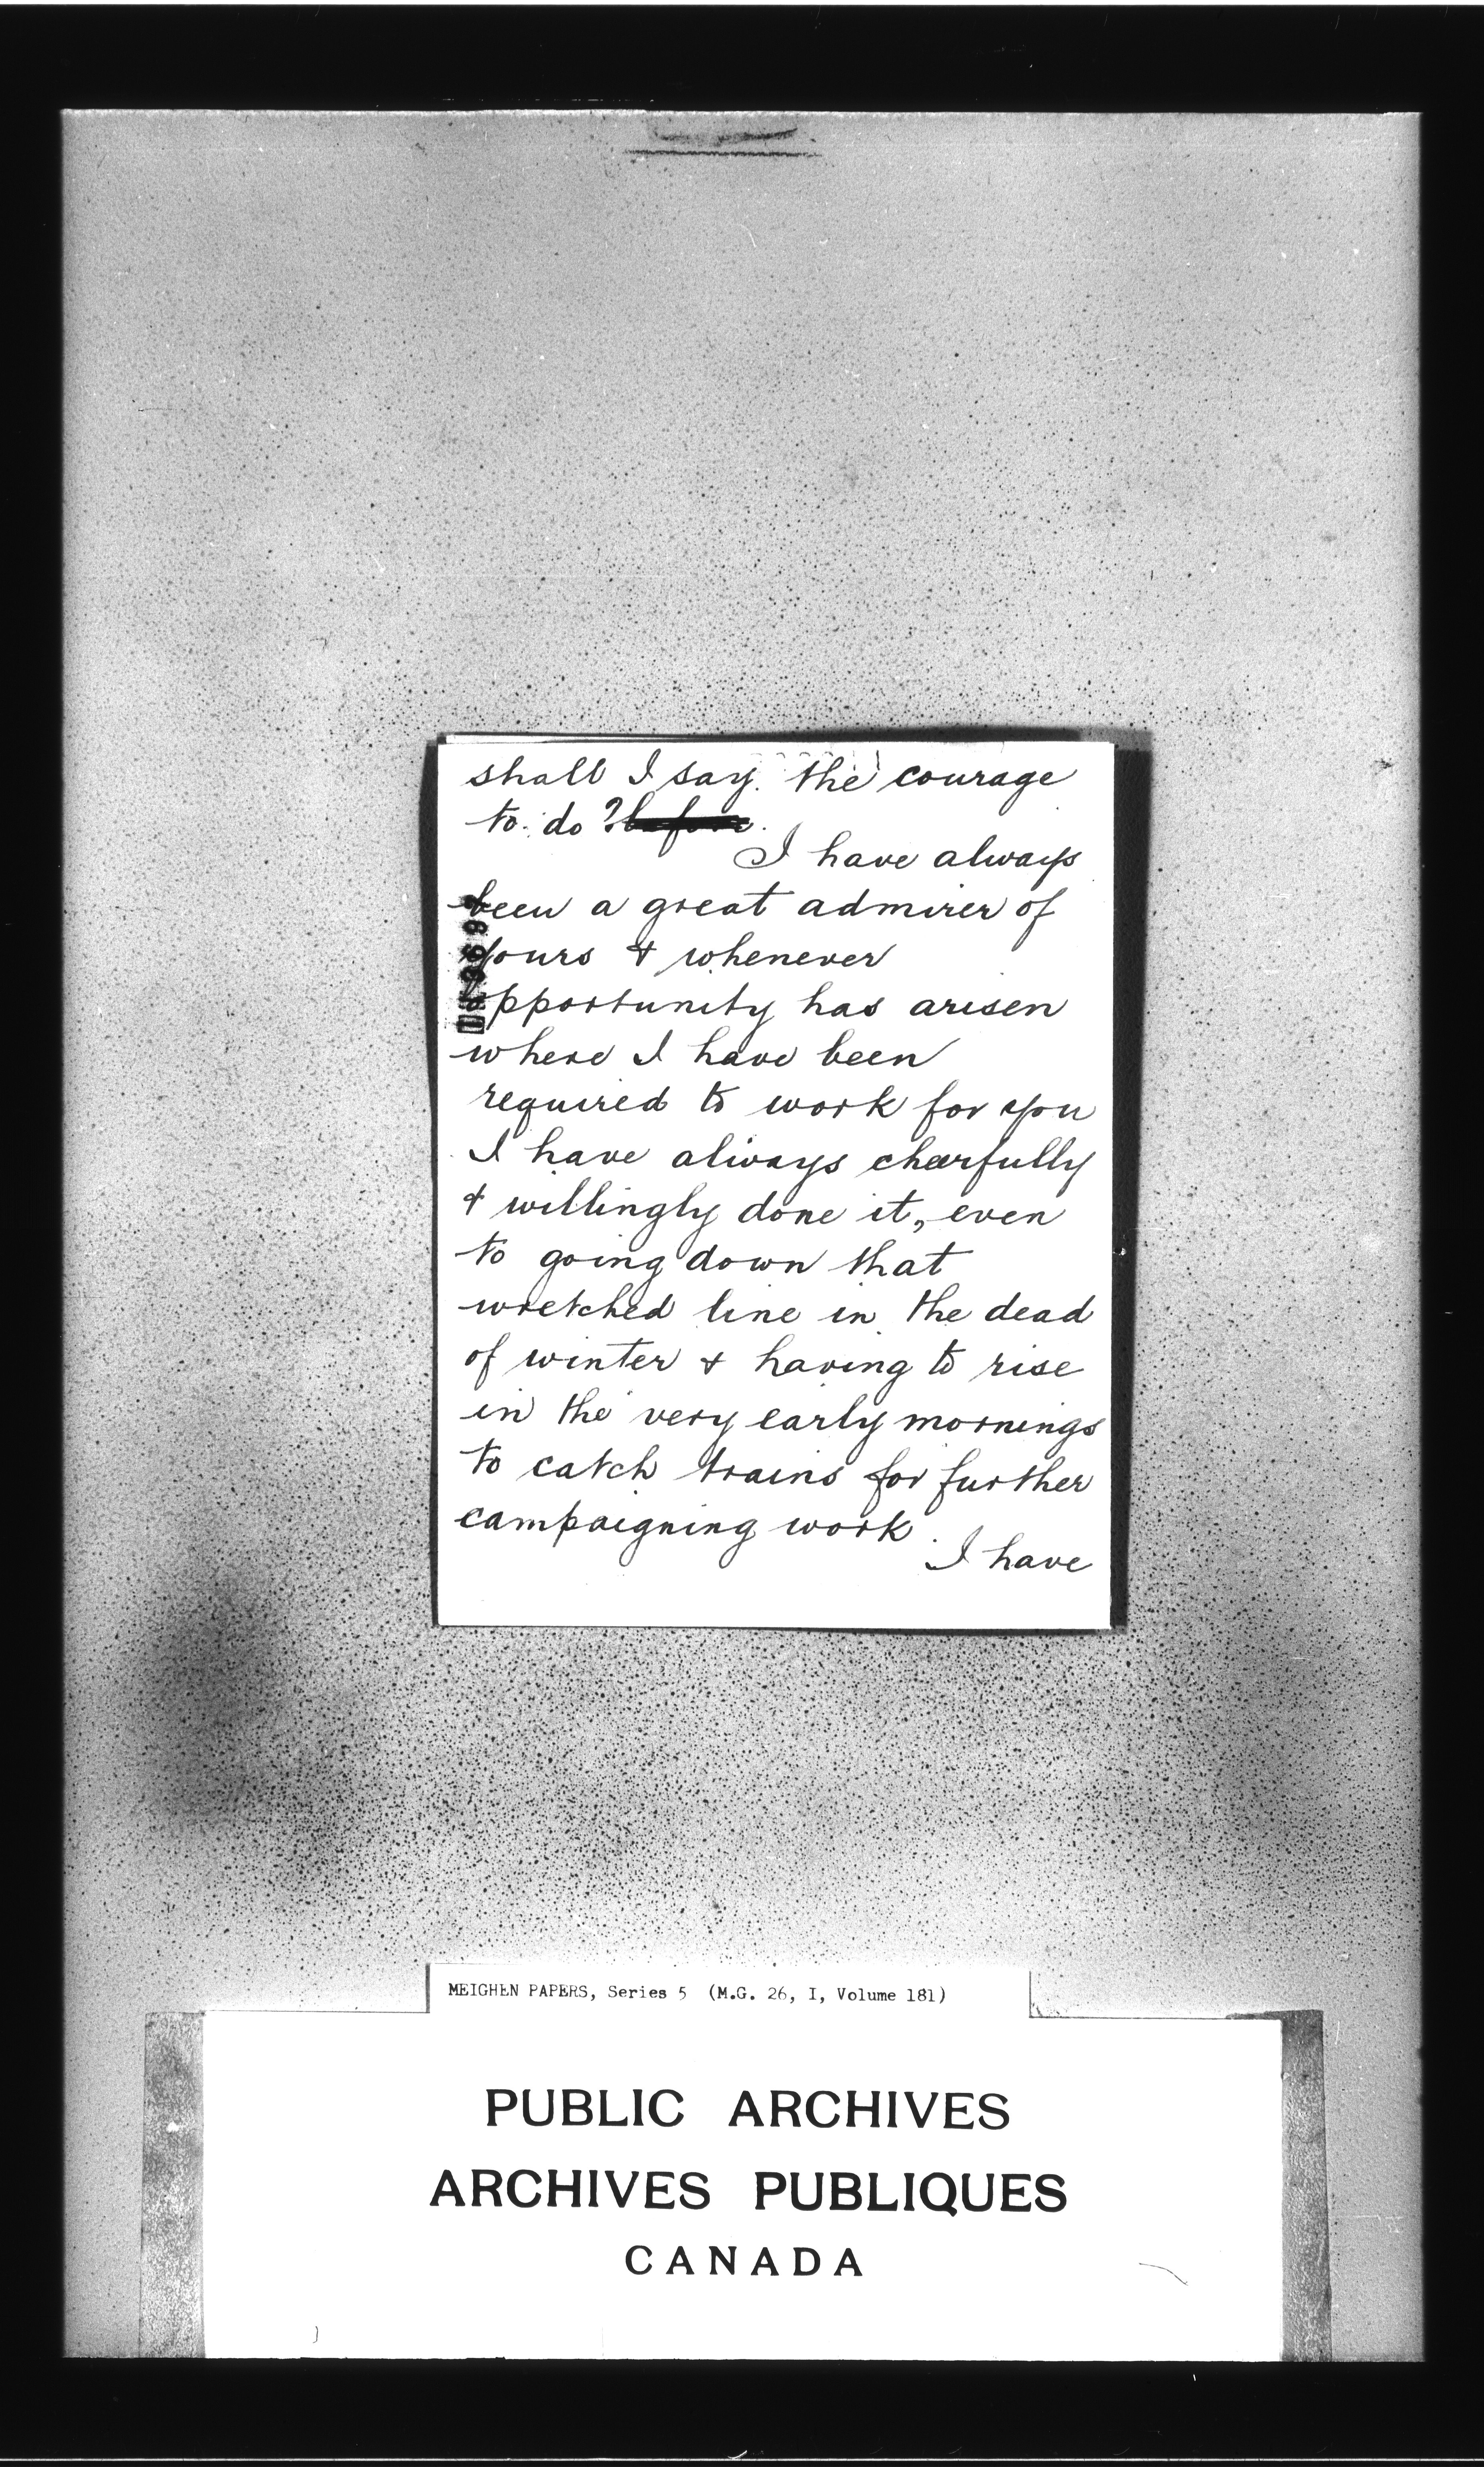 shall I say. the courage
to do ? before.
I have always
been a great admirer of
yours & whenever
opportunity has arisen
where I have been
required to work for you
I have always cheerfully
& willingly done it, even
to going down that
wretched line in the dead
of winter & having to rise
in the very early mornings
to catch trains for further
campaigning work.
I have
MEIGHEN PAPERS, Series 5 (M.G. 26, I, Volume 181)
PUBLIC ARCHIVES
ARCHIVES PUBLIQUES
CANADA